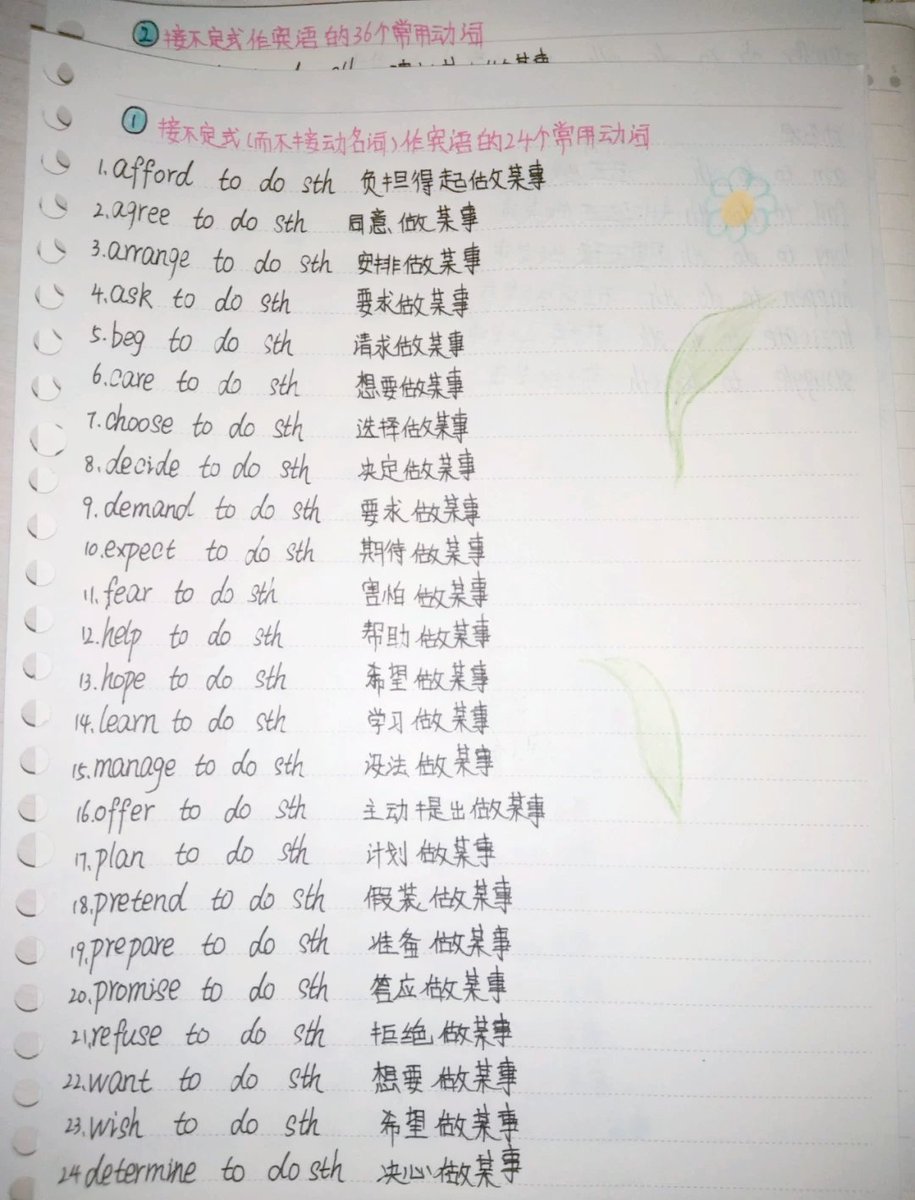 ② 接不定式作宾语的36个常用动词
① 接不定式(而不接动名词)作宾语的24个常用动词
1.afford to do sth 负担得起做某事
2.agree to do sth 同意做某事
3.arrange to do sth 安排做某事
4.ask to do sth 要求做某事
5.beg to do sth 请求做某事
6.care to do sth 想要做某事
7.choose to do sth 选择做某事
8.decide to do sth 决定做某事
9.demand to do sth 要求做某事
10.expect to do sth 期待做某事
11.fear to do sth 害怕做某事
12.help to do sth 帮助做某事
13.hope to do sth 希望做某事
14.learn to do sth 学习做某事
15.manage to do sth 设法做某事
16.offer to do sth 主动提出做某事
17.plan to do sth 计划做某事
18.pretend to do sth 假装做某事
19.prepare to do sth 准备做某事
20.promise to do sth 答应做某事
21.refuse to do sth 拒绝做某事
22.want to do sth 想要做某事
23.wish to do sth 希望做某事
24 determine to do sth 决心做某事